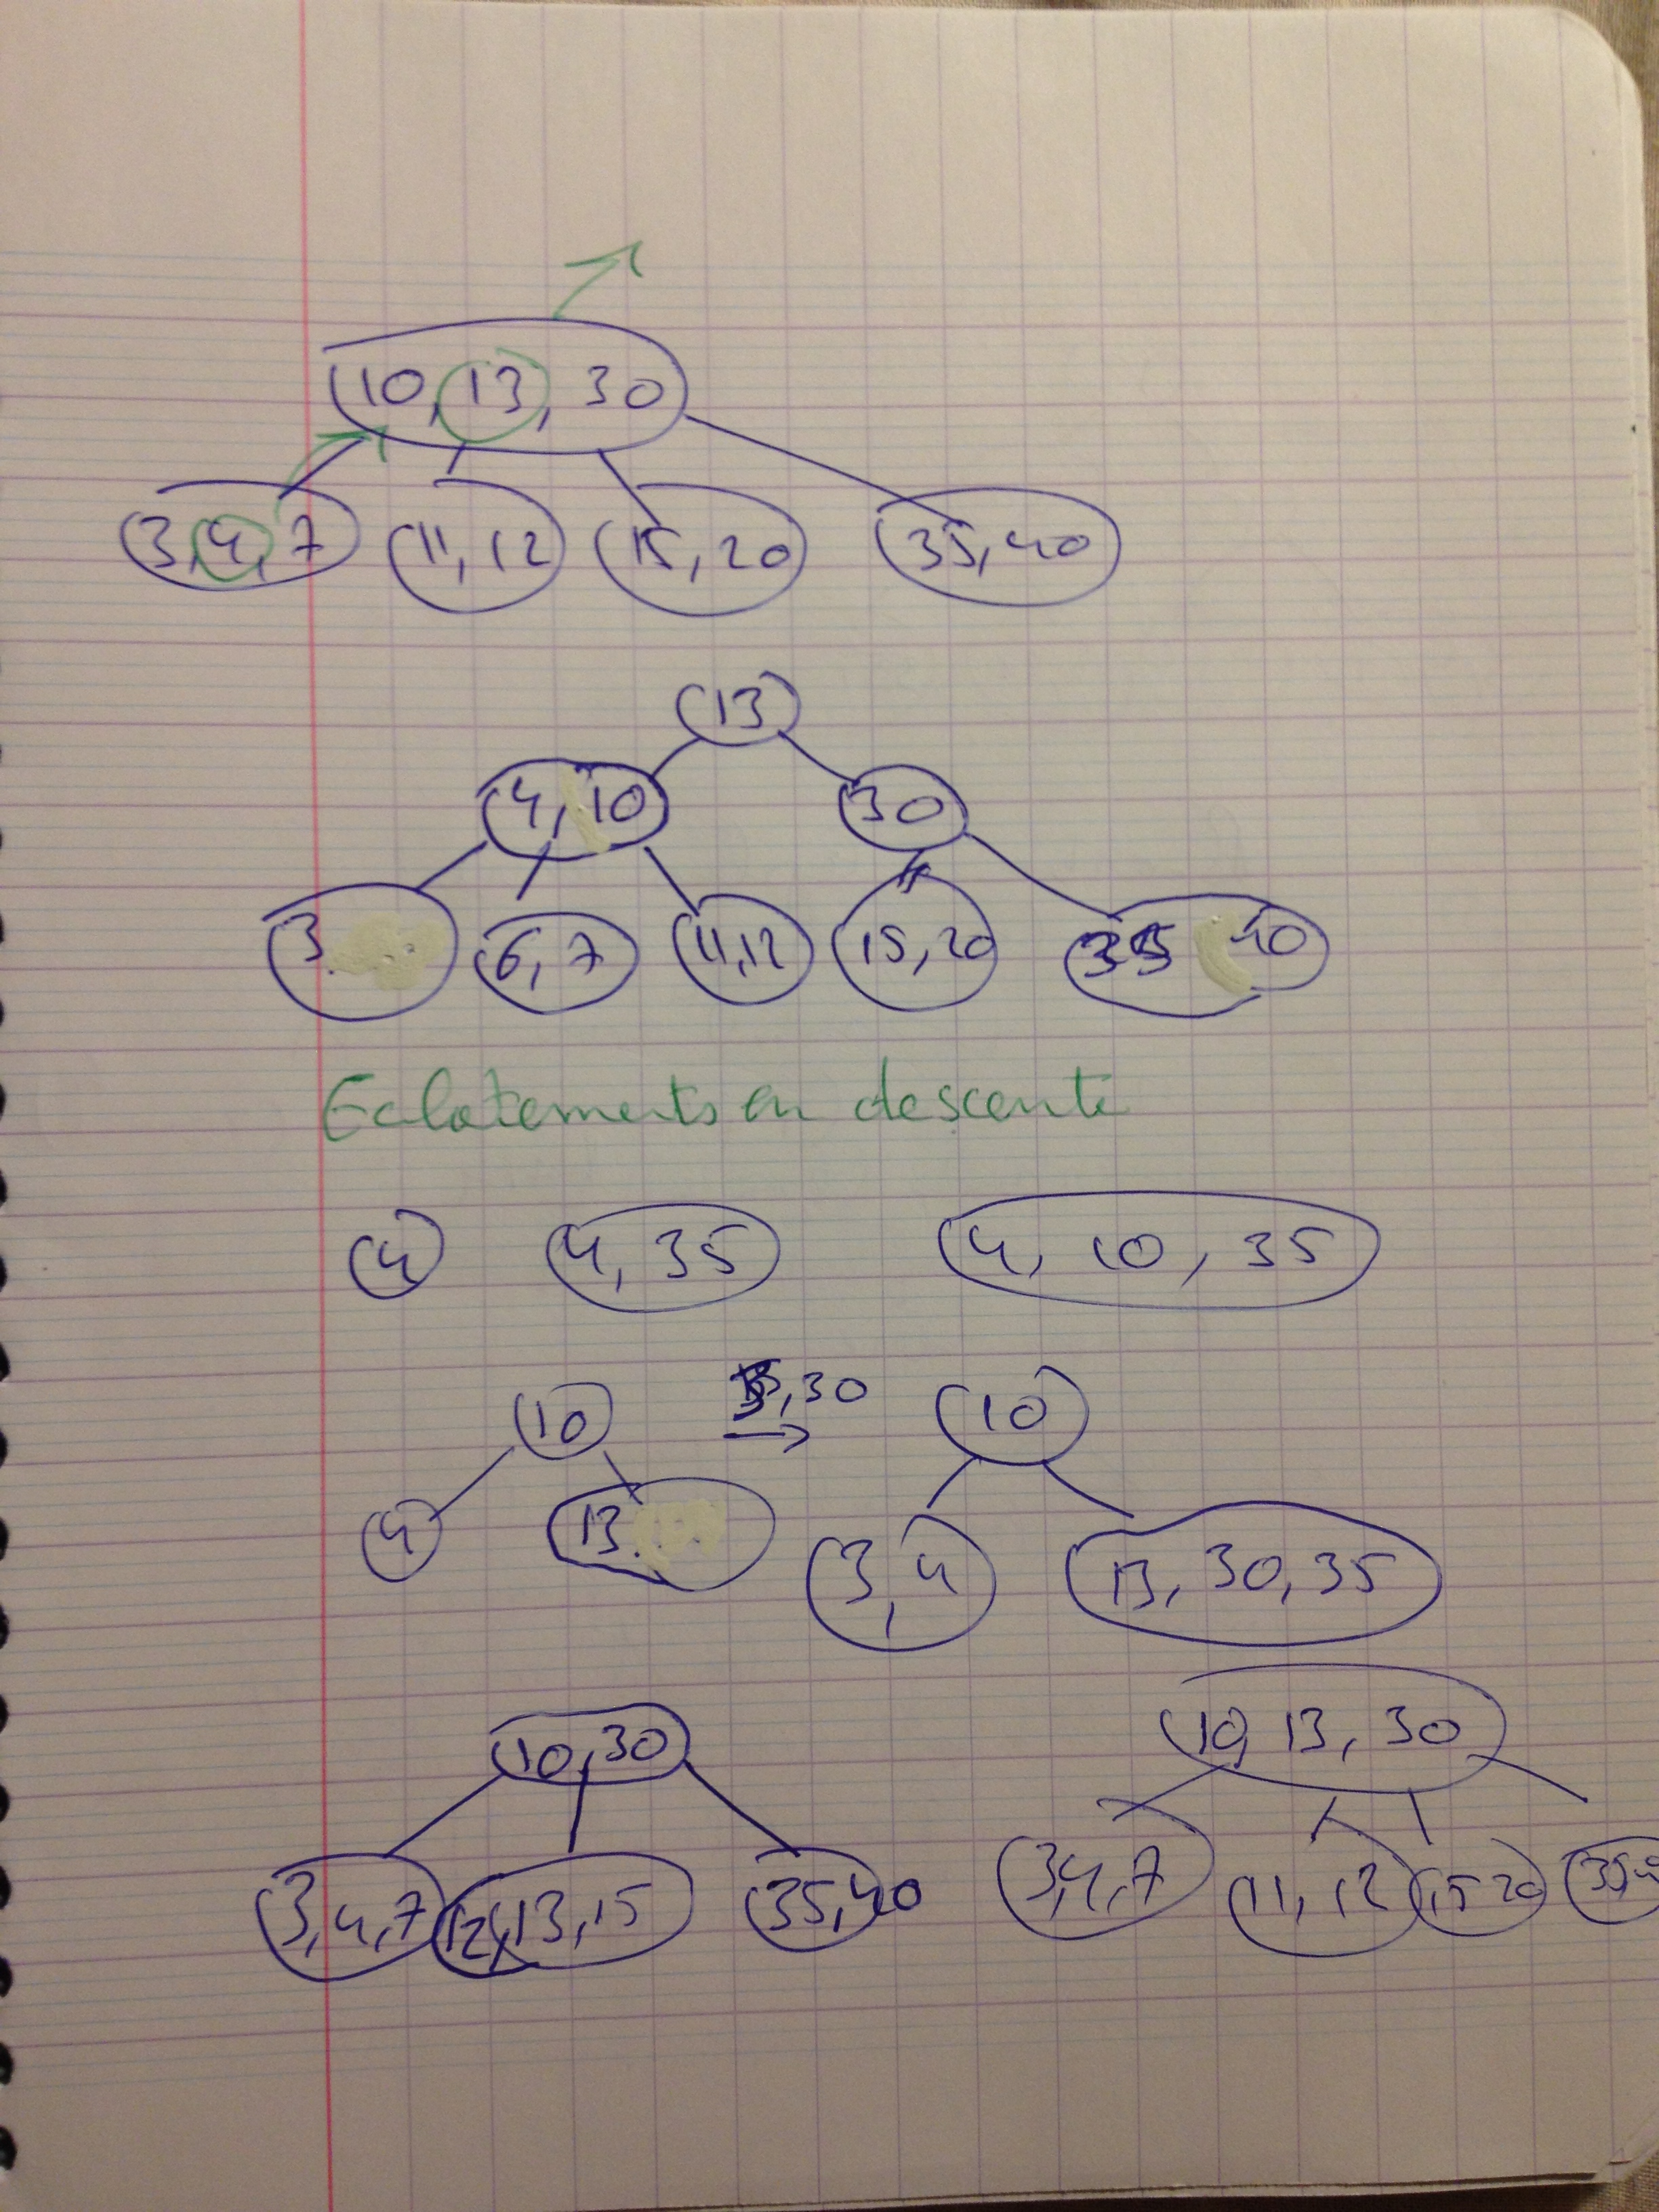 10, 13, 30
3, 4, 7 11, 12 15, 20 35, 40
13
4, 10 30
3 6, 7 11, 12 15, 20 35 40
Eclatements en descente
4 4, 35 4, 10, 35
10 , 30 10
4 13 3, 4 13, 30, 35
10, 30 10, 13, 30
3, 4, 7 12, 13, 15 35, 40 3, 4, 7 11, 12 15 20